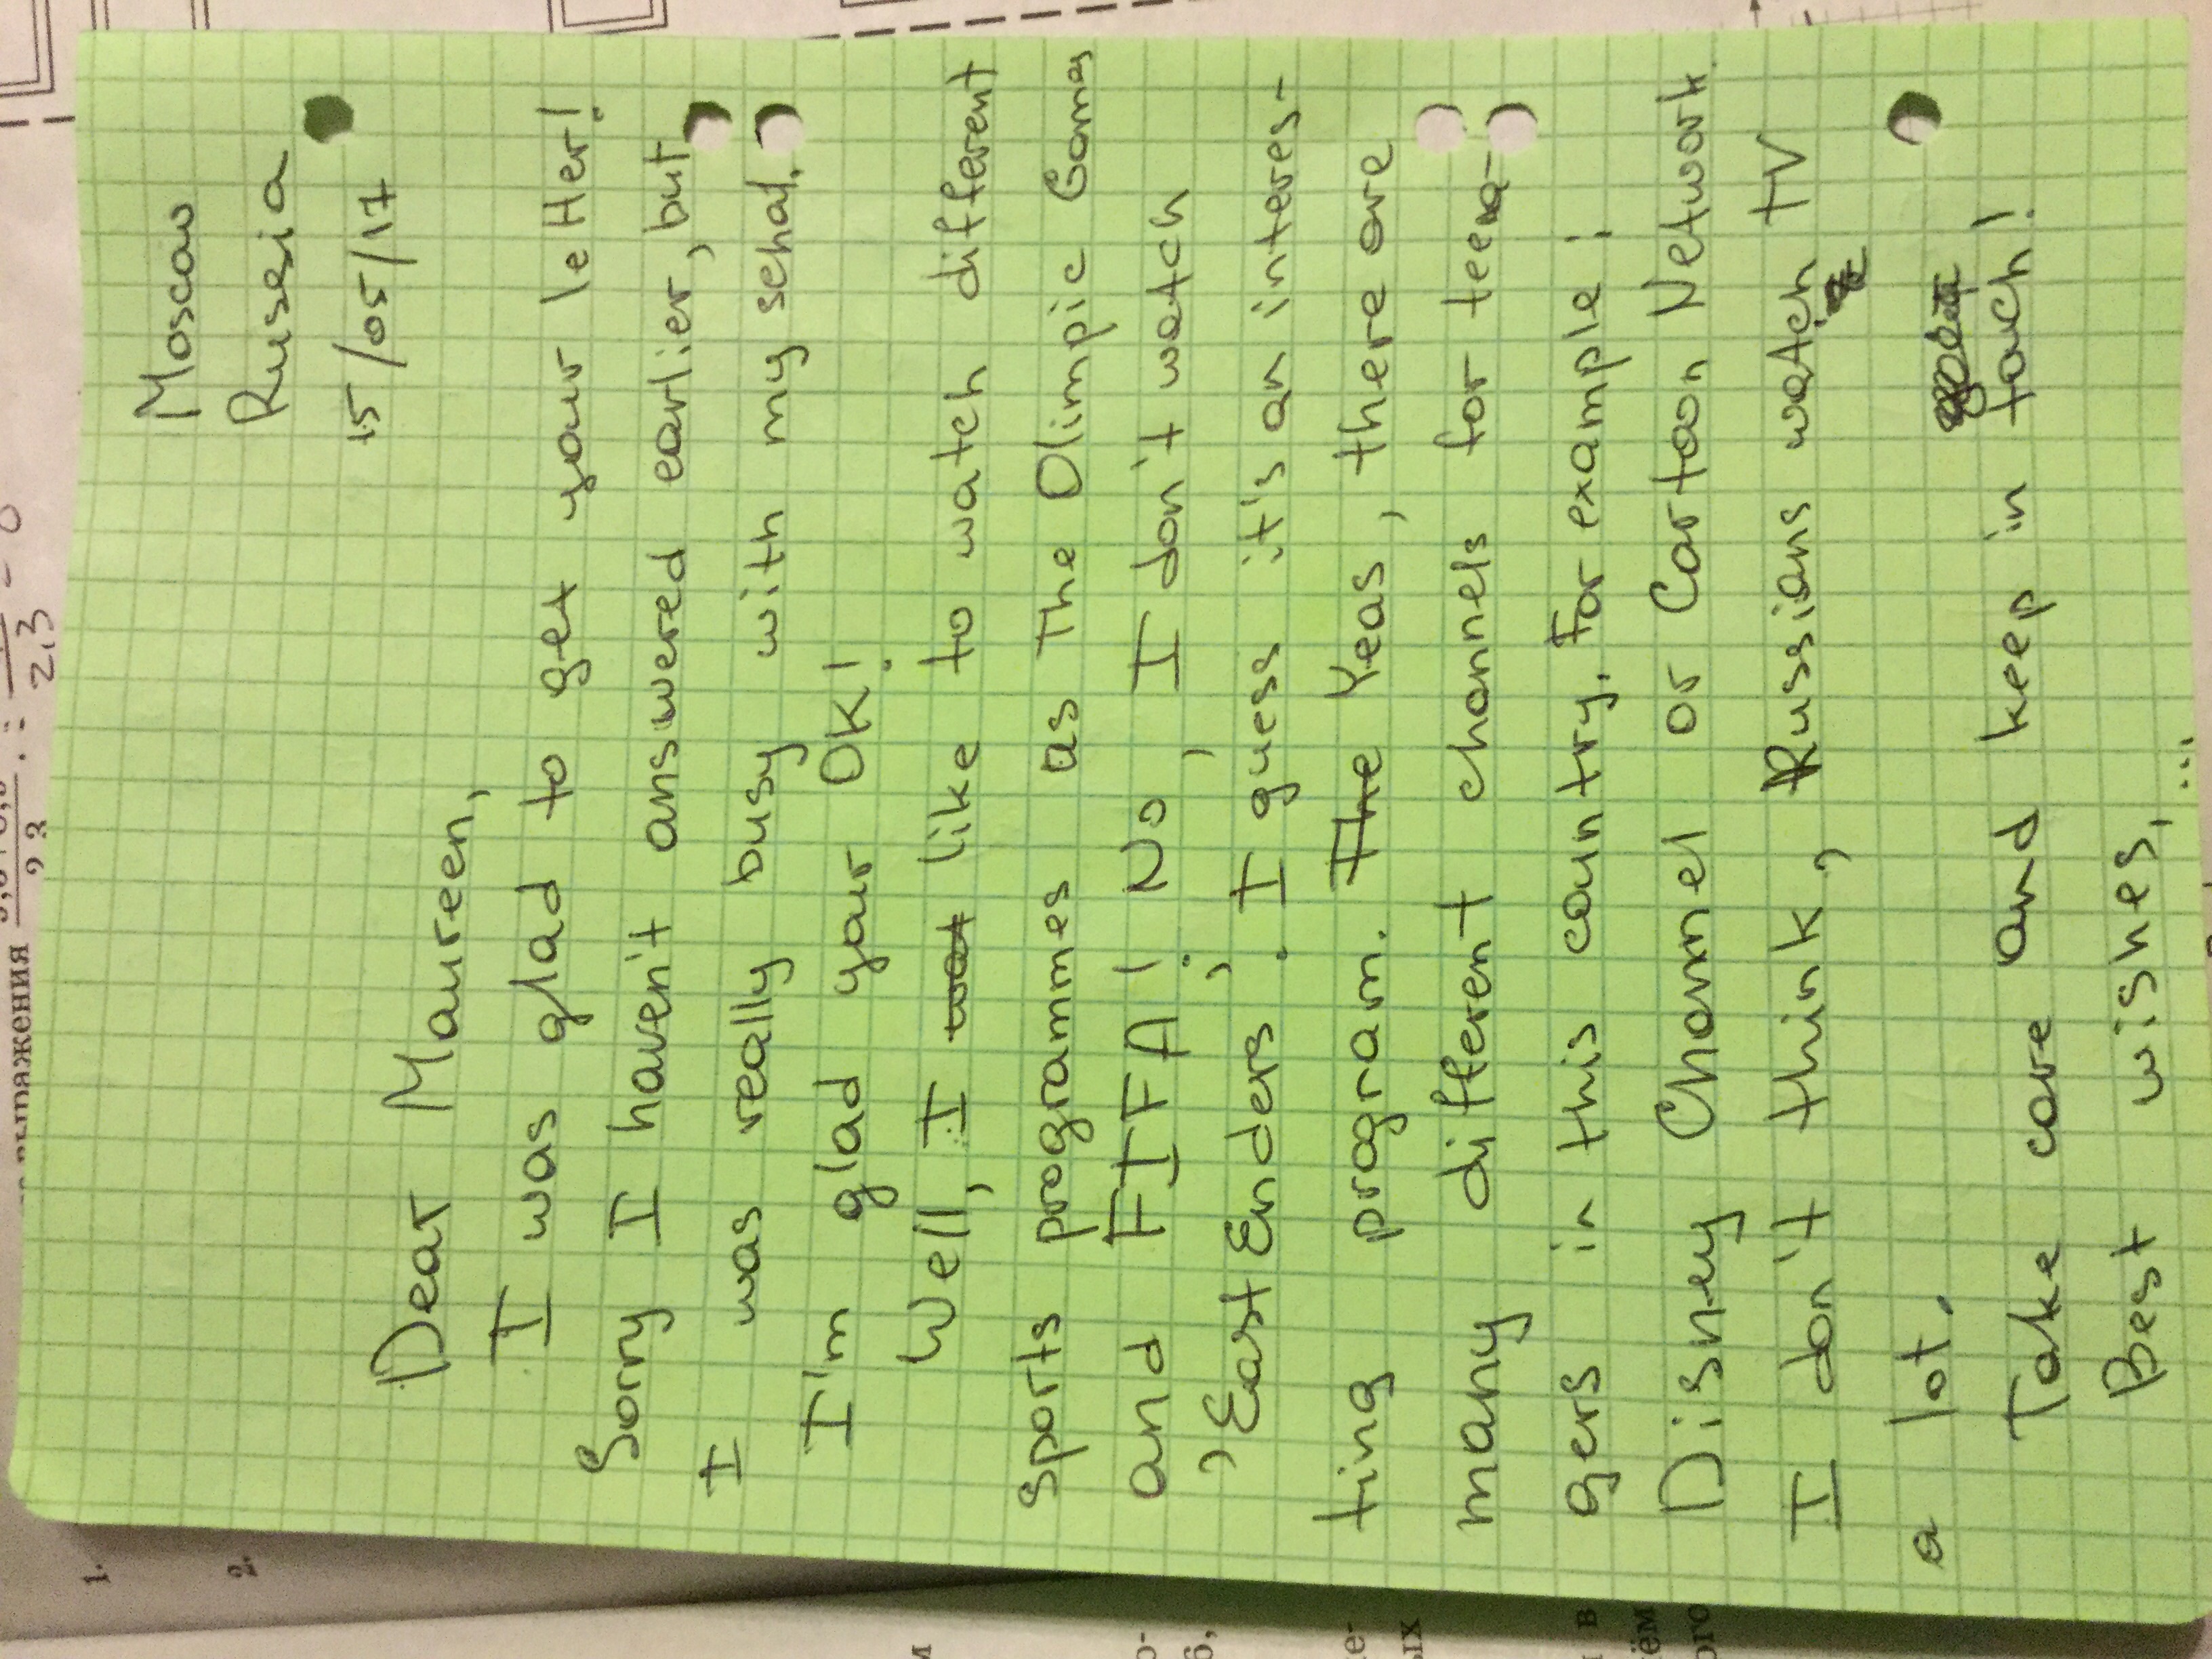 Moscow
Russia
15/05/17
Dear Maureen,
I was glad to get your letter!
Sorry I haven't answered earlier, but
I was really busy with my school.
I'm glad your OK!
Well, I like to watch different
sports programmes as The Olimpic Games
and FIFA! No, I don't watch
"EastEnders". I guess it's an interes-
ting program. The Yeas, there are
many different channels for teena-
gers in this country. For example:
Disney Channel or Cartoon Network.
I don't think, Russians watch TV
a lot.
Take care and keep in touch!
Best wishes, ...
1.
2.
2,3